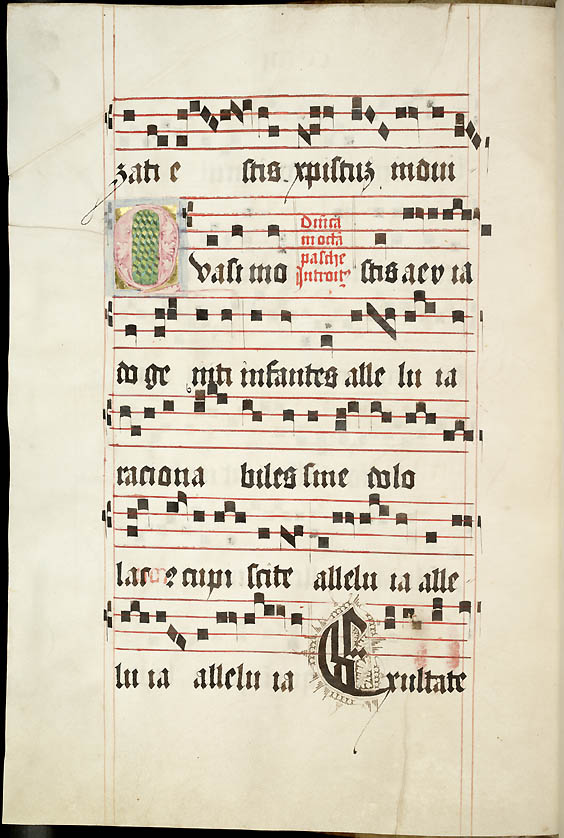 zati e stis xpistuz indui
Quasi mo
Dnica
in octa
pasche
Introit9
stis aev ia
do ge niti infantes alle lu ia
raciona biles sine dolo
lac cupi scite allelu ia alle
lu ia allelu ia Exultate